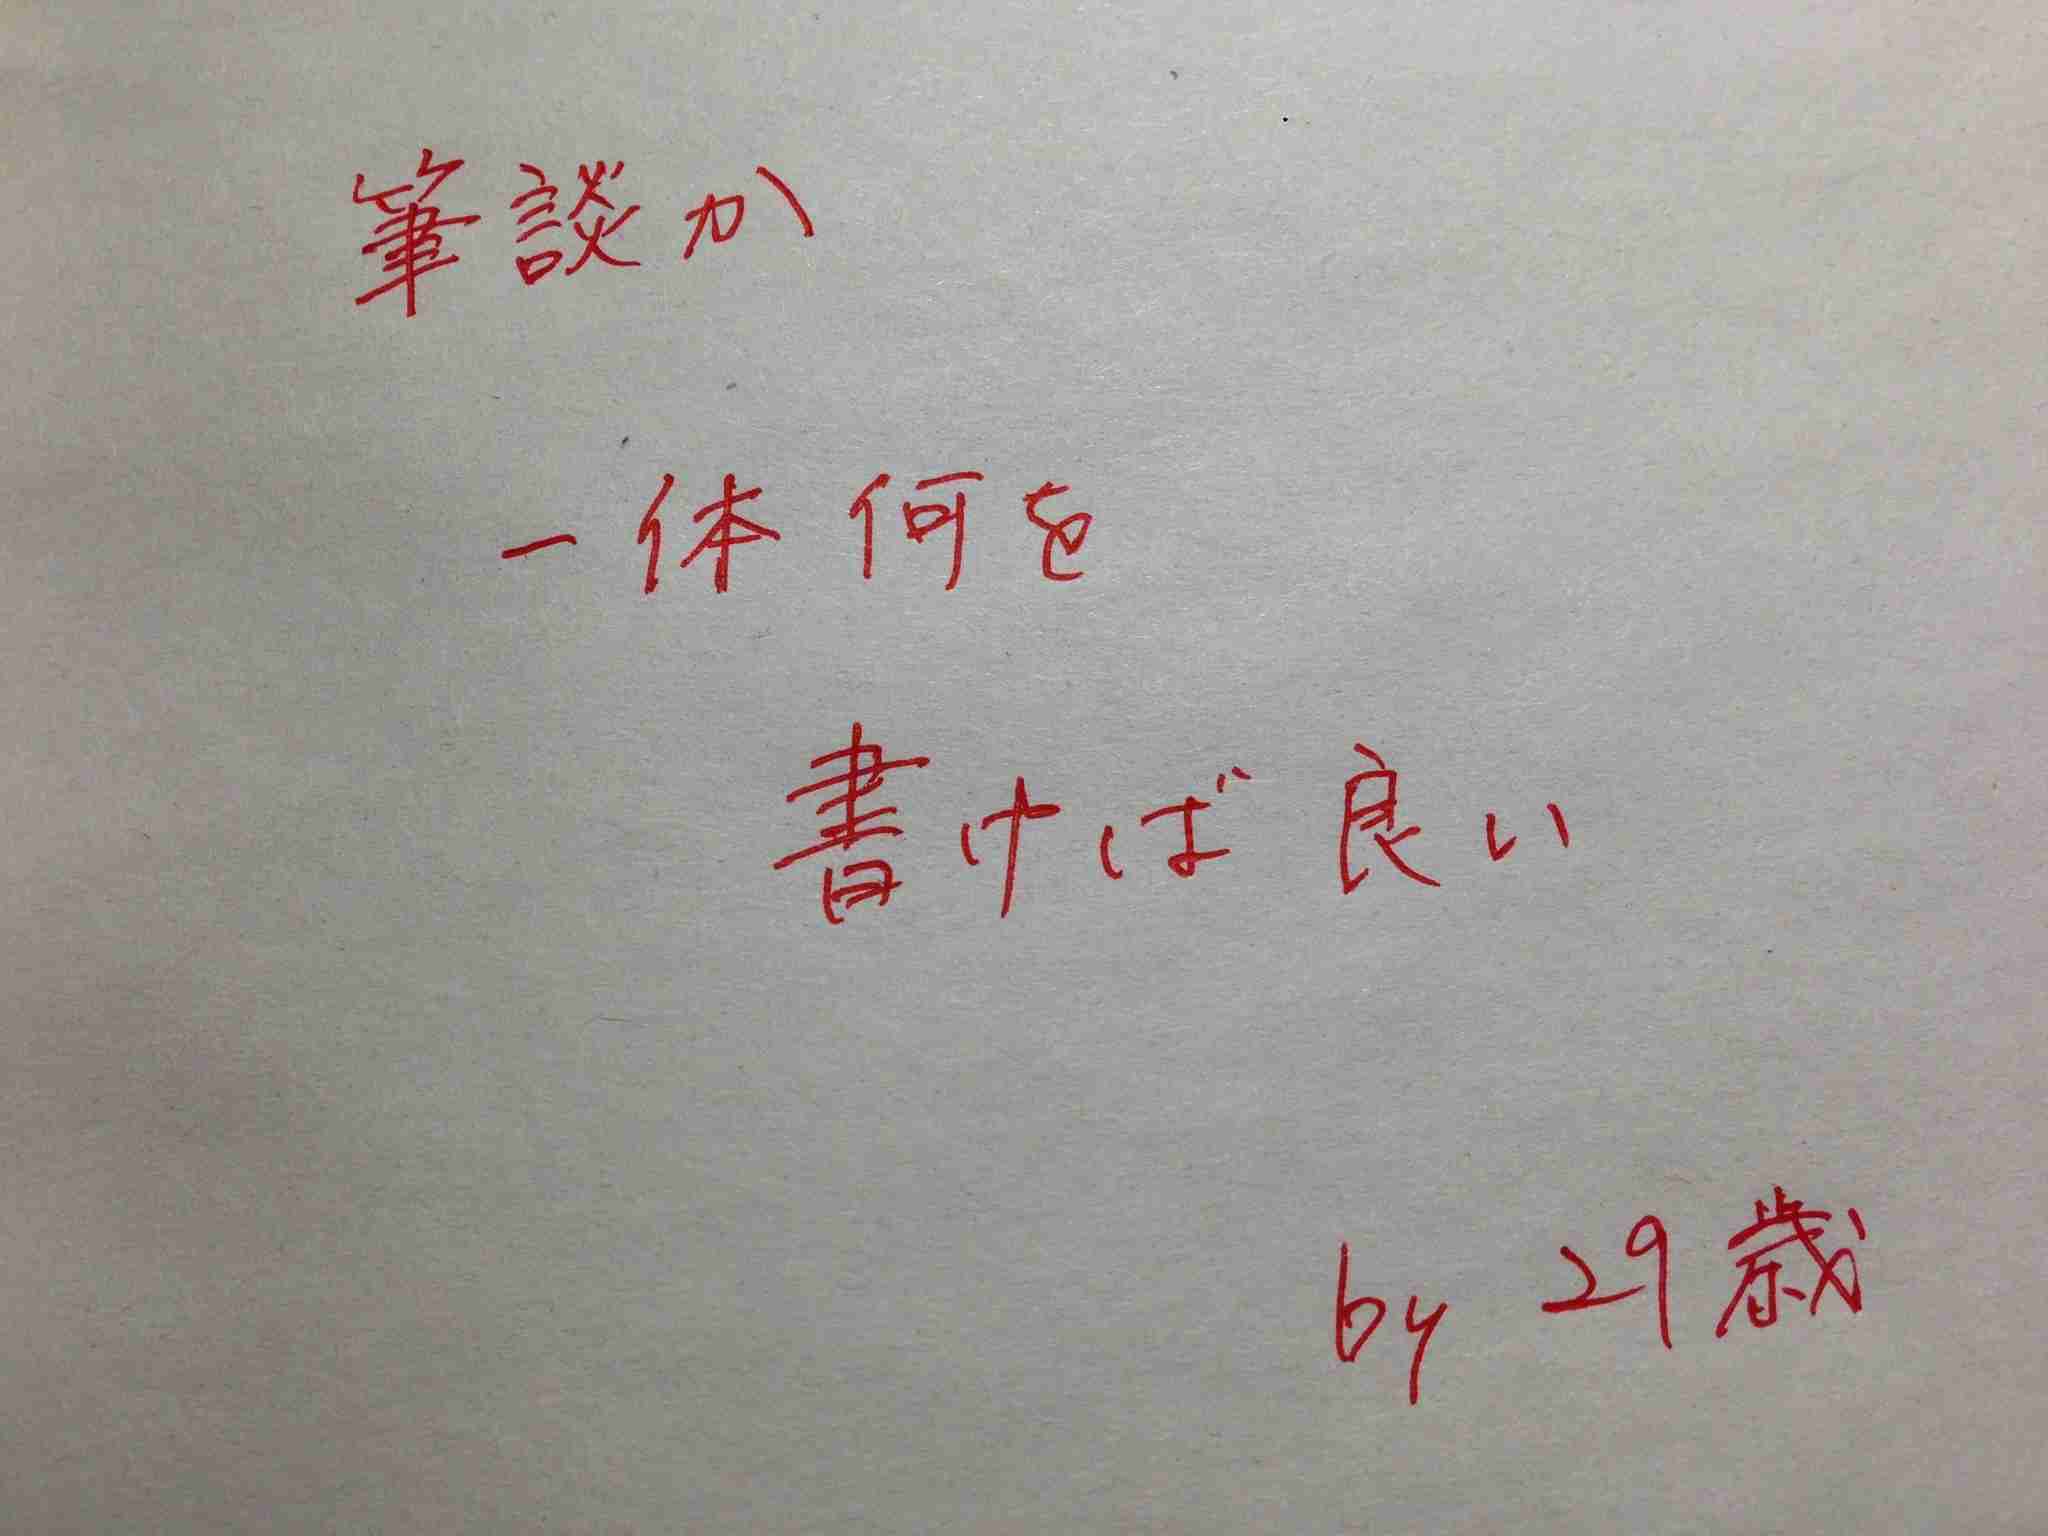 筆談か
一体何を
書けば良い
by 29歳